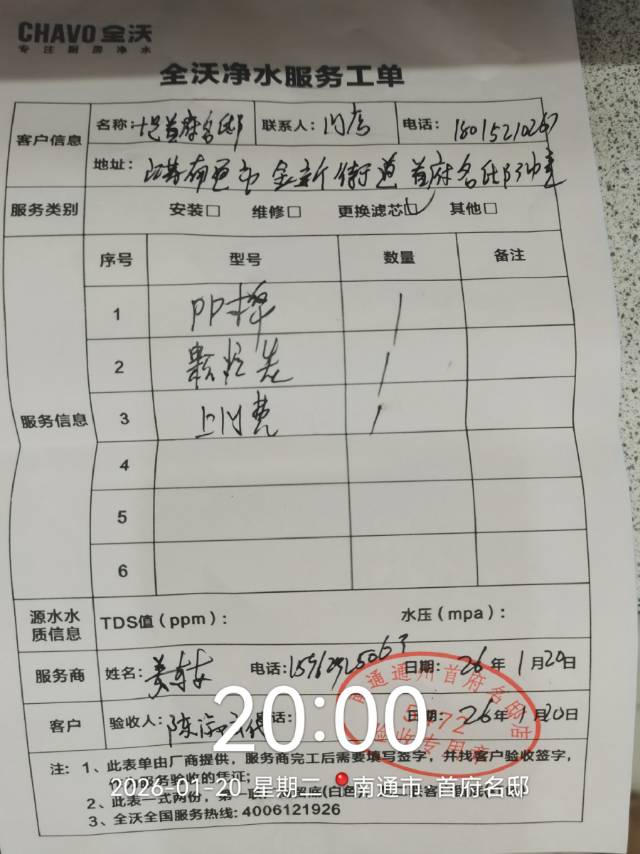 CHAVO 全沃
专注厨房净水
全沃净水服务工单
客户信息
名称: 首府名邸 联系人: 门店 电话: 18015210267
地址: 江苏南通市金新街道首府名邸
服务类别 安装□ 维修□ 更换滤芯☑ 其他□
服务信息
序号 型号 数量 备注
1 PP棉 1
2 颗粒炭 1
3 上门费 1
4
5
6
源水水质信息 TDS值（ppm）: 水压（mpa）:
服务商 姓名: 电话: 日期: 26年1月20日
客户 验收人: 日期: 26年1月20日
南通通州首府名邸店
5172
验收专用章
20:00
注: 1、此表单由厂商提供，服务商完工后需要填写签字，并找客户验收签字，
服务验收的凭证;
2026-01-20 星期二 南通市·首府名邸
2、此表一式两份，第一联
3、全沃全国服务热线: 4006121926